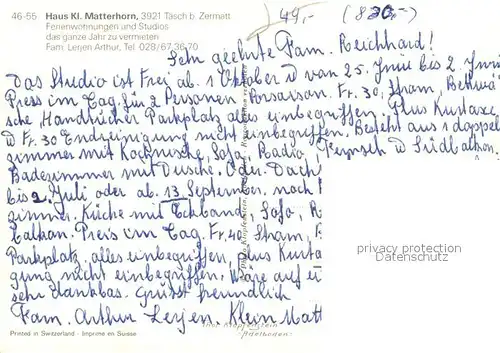 46-55 Haus Kl. Matterhorn, 3921 Täsch b. Zermatt
Ferienwohnungen und Studios
das ganze Jahr zu vermieten
Fam. Lerjen Arthur, Tel. 028/67 36 70
49,-
Sehr geehrte Fam. Reichhard!
Das Studio ist Frei ab. 1 Oktober u von 25. Juni bis 2. Juni
Preis im Tag. für 2 Personen. Vorsaison. Fr. 30. Strom, Bettwä
sche Handtücher Parkplatz alles einbegriffen. Plus Kurtaxe
u Fr. 30 Endreinigung nicht einbegriffen. Besteht aus 1 doppel
zimmer mit Kochnische, Sofa, Radio, Fernseh u Südbalkon.
Badezimmer mit Dusche. Oder. Dach
bis 2. Juli oder ab. 13 September. noch
zimmer. Küche mit Eckband, Sofa, R
Balkon. Preis im Tag. Fr. 40. Strom,
Parkplatz, alles einbegriffen, Plus Kurta
gung nicht einbegriffen. Wäre auf
sehr dankbar. Grüsst freundlich
Fam. Arthur Lerjen. Klein Matt
privacy protection
Datenschutz
Printed in Switzerland - Imprimé en Suisse
Photo Klopfenstein, Adelboden